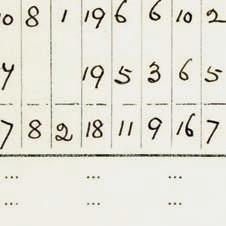 10 8 1 19 6 6 10 2
4 19 5 3 6 5
7 8 2 18 11 9 16 7
... ... ...
... ... ...